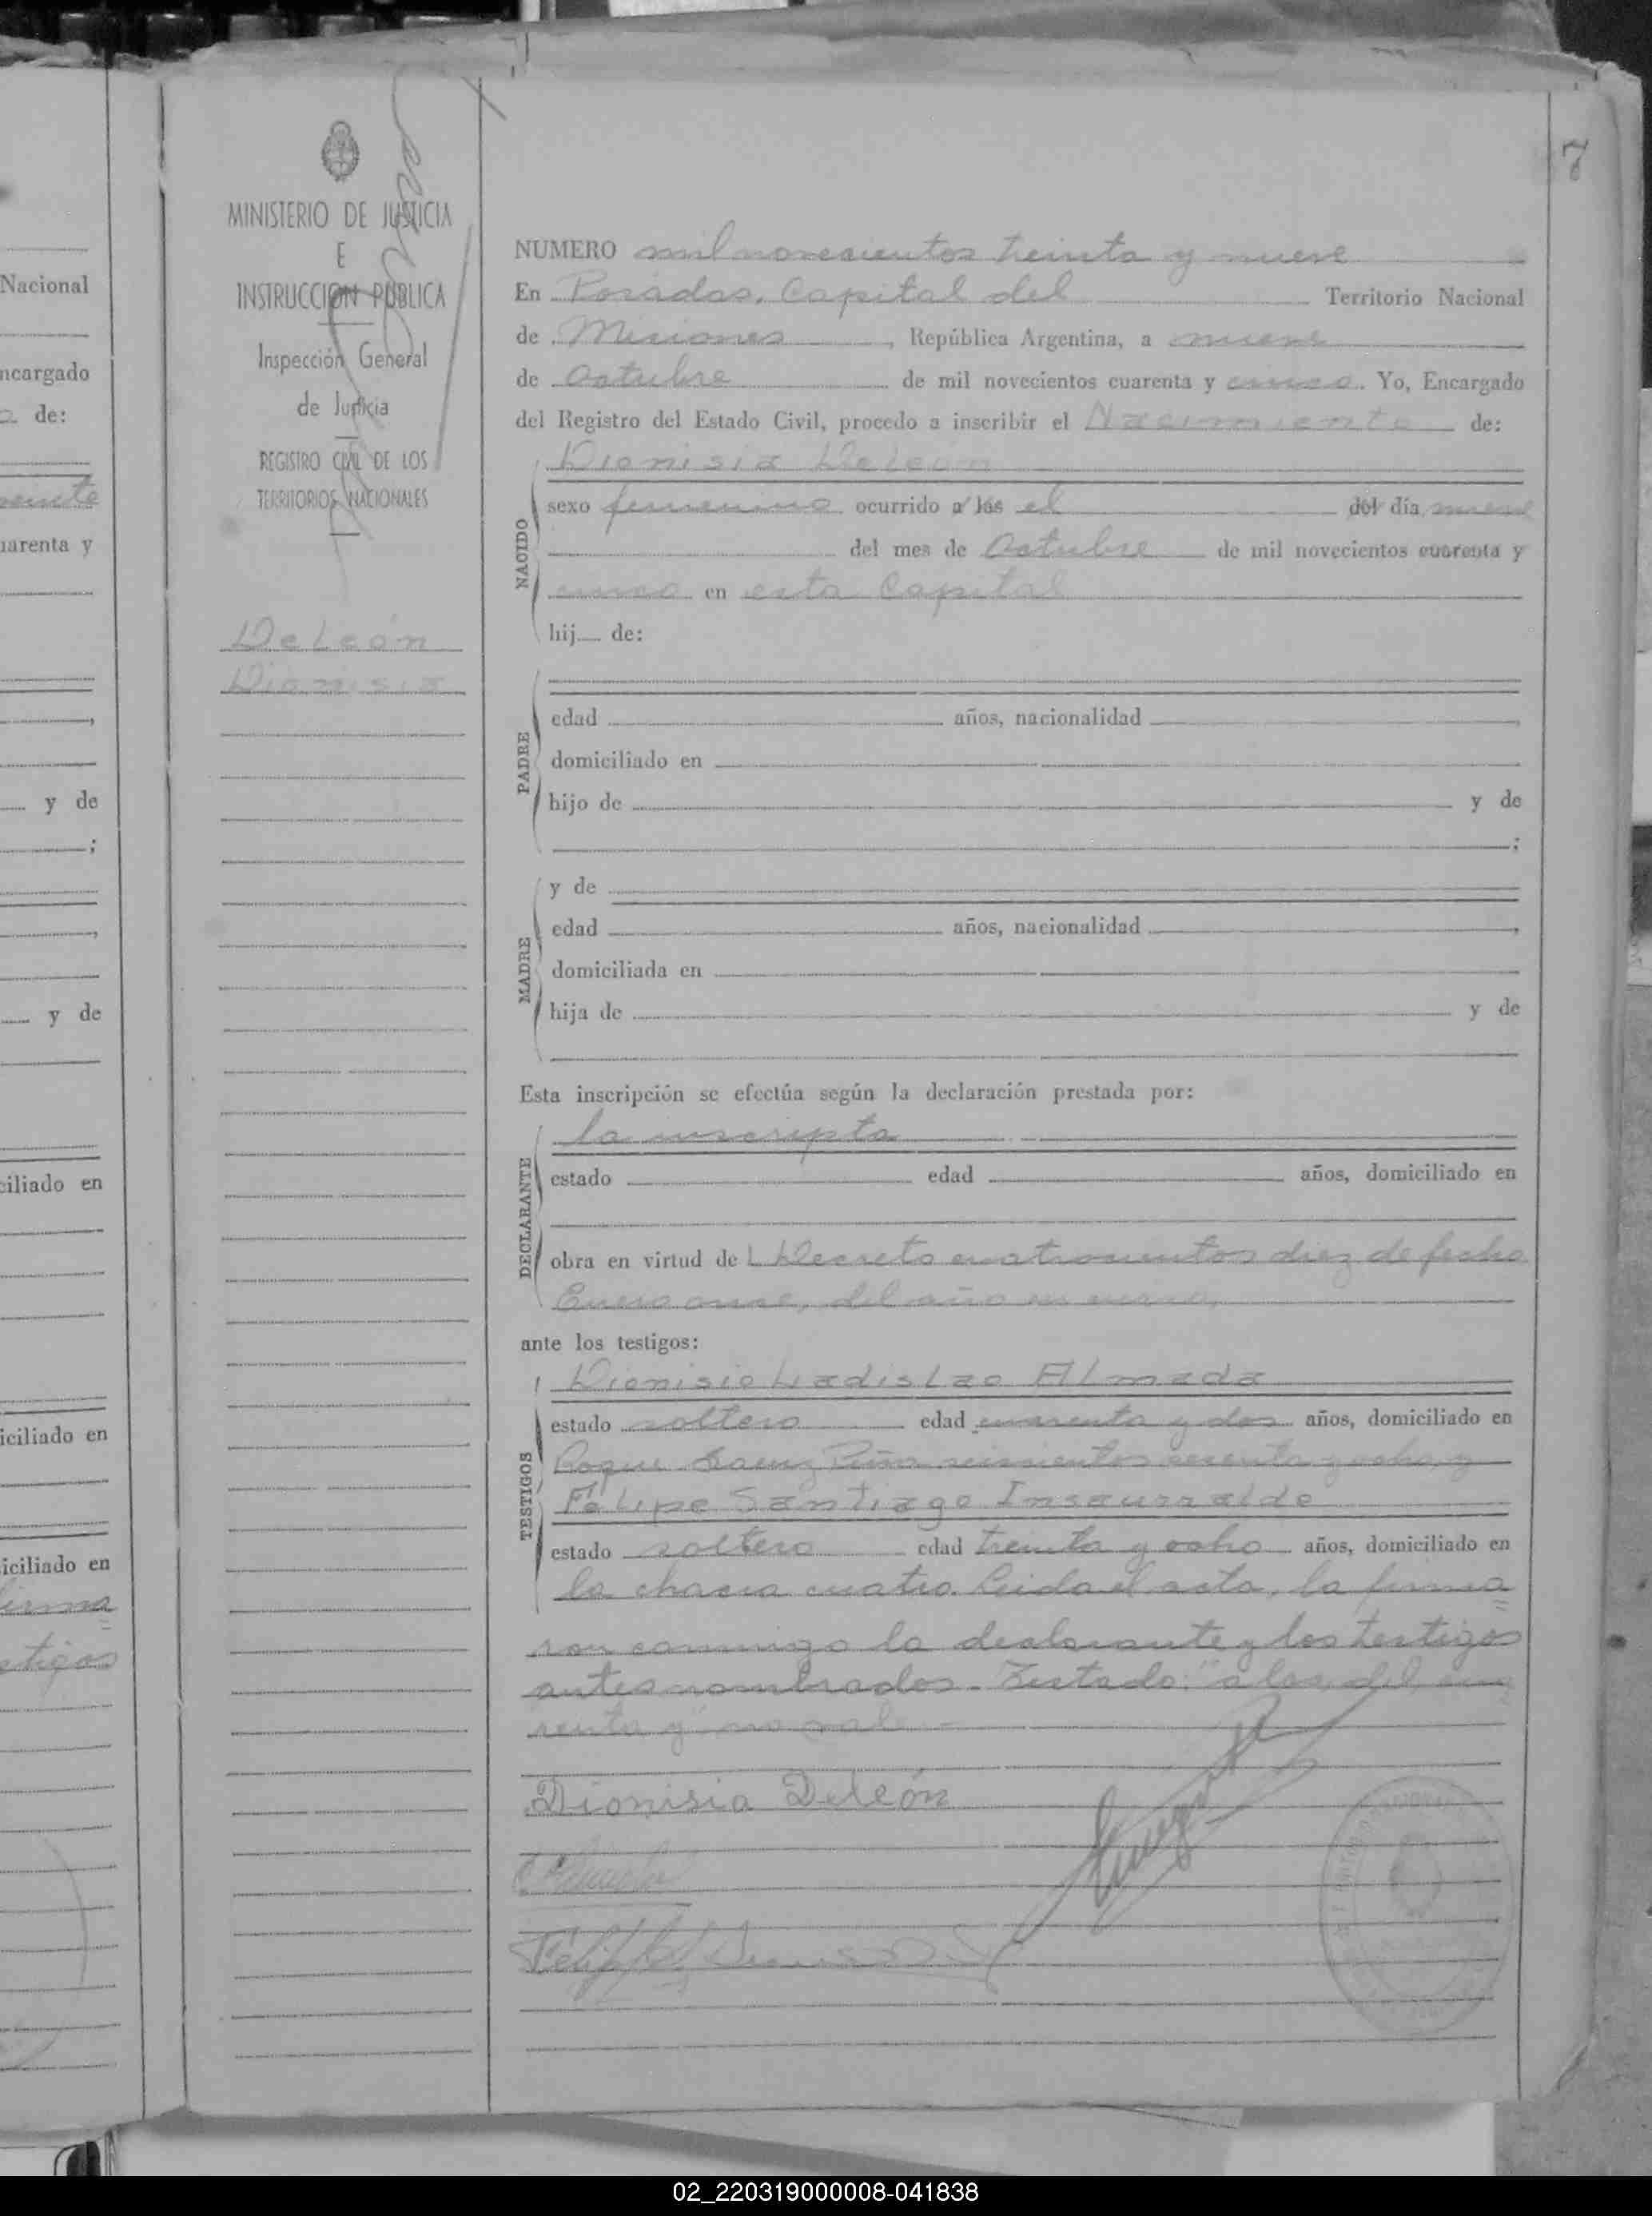 Nacional
ncargado
de:
arenta y
y de
y de
ciliado en
iciliado en
iciliado en
firma
stigos
7
MINISTERIO DE JUSTICIA
E
INSTRUCCION PUBLICA
Inspección General
de Justicia
REGISTRO CIVIL DE LOS
TERRITORIOS NACIONALES
DeLeón
Dionisia
NUMERO mil novecientos treinta y nueve
En Posadas, Capital del Territorio Nacional
de Misiones, República Argentina, a nueve
de Octubre de mil novecientos cuarenta y cinco. Yo, Encargado
del Registro del Estado Civil, procedo a inscribir el Nacimiento de:
Dionisia Deleon
NACIDO
sexo femenino ocurrido a las el del día nueve
del mes de Octubre de mil novecientos cuarenta y
cinco en esta Capital
hij de:
PADRE
edad años, nacionalidad ,
domiciliado en
hijo de y de
;
MADRE
y de
edad años, nacionalidad ,
domiciliada en
hija de y de
Esta inscripción se efectúa según la declaración prestada por:
la inscripta
DECLARANTE
estado edad años, domiciliado en
obra en virtud de L Decreto cuatrocientos diez de fecha
Enero once, del año en curso,
ante los testigos:
TESTIGOS
Dionisio Ladislao Almada
estado soltero edad cuarenta y dos años, domiciliado en
Roque Saenz Peña seiscientos sesenta y ocho, y
Felipe Santiago Insaurralde
estado soltero edad treinta y ocho años, domiciliado en
la chacra cuatro. Leida el acta, la firma=
ron conmigo la declarante y los testigos
antes nombrados. Testado: "a las, del, cua=
renta y" no vale.-
Dionisia Deleón
02_220319000008-041838